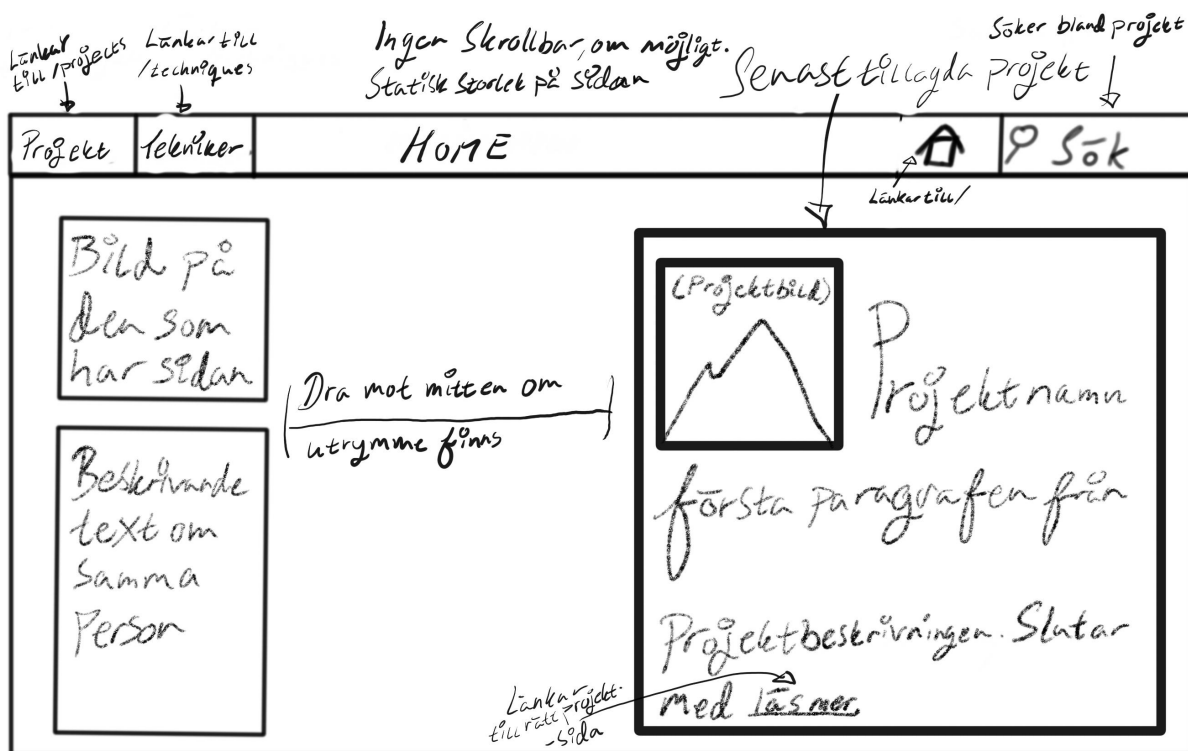 Länkar
till /projects
Länkar till
/techniques
Ingen Skrollbar, om möjligt.
Statisk storlek på sidan
Senast tillagda projekt
Söker bland projekt
Projekt
Tekniker
HOME
Sök
Länkar till /
Bild på
den som
har sidan
Beskrivande
text om
Samma
Person
Dra mot mitten om
utrymme finns
(Projektbild)
Projektnamn
första paragrafen från
Projektbeskrivningen. Slutar
med läs mer.
Länkar
till rätt projekt-
-sida